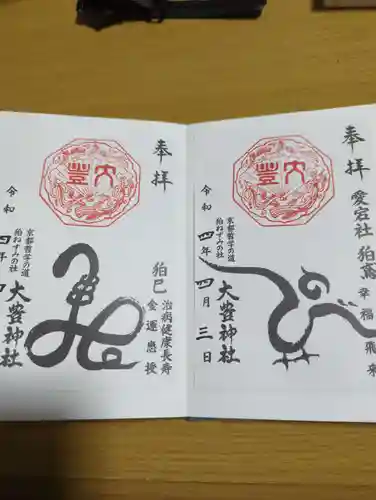 奉拝
愛宕社 狛鳶
幸福飛来
大豊
令和四年四月三日
京都哲学の道
狛ねずみの社
大豊神社
奉拝
狛巳
治病健康長寿
金運恵授
大豊
令和四年
京都哲学の道
狛ねずみの社
大豊神社